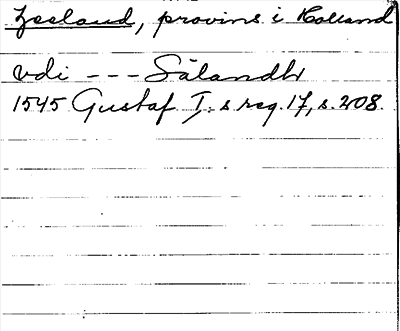 Zeeland, provins i Holland
vdi --- Sälandh
1545 Gustaf I:s reg. 17, s. 208.